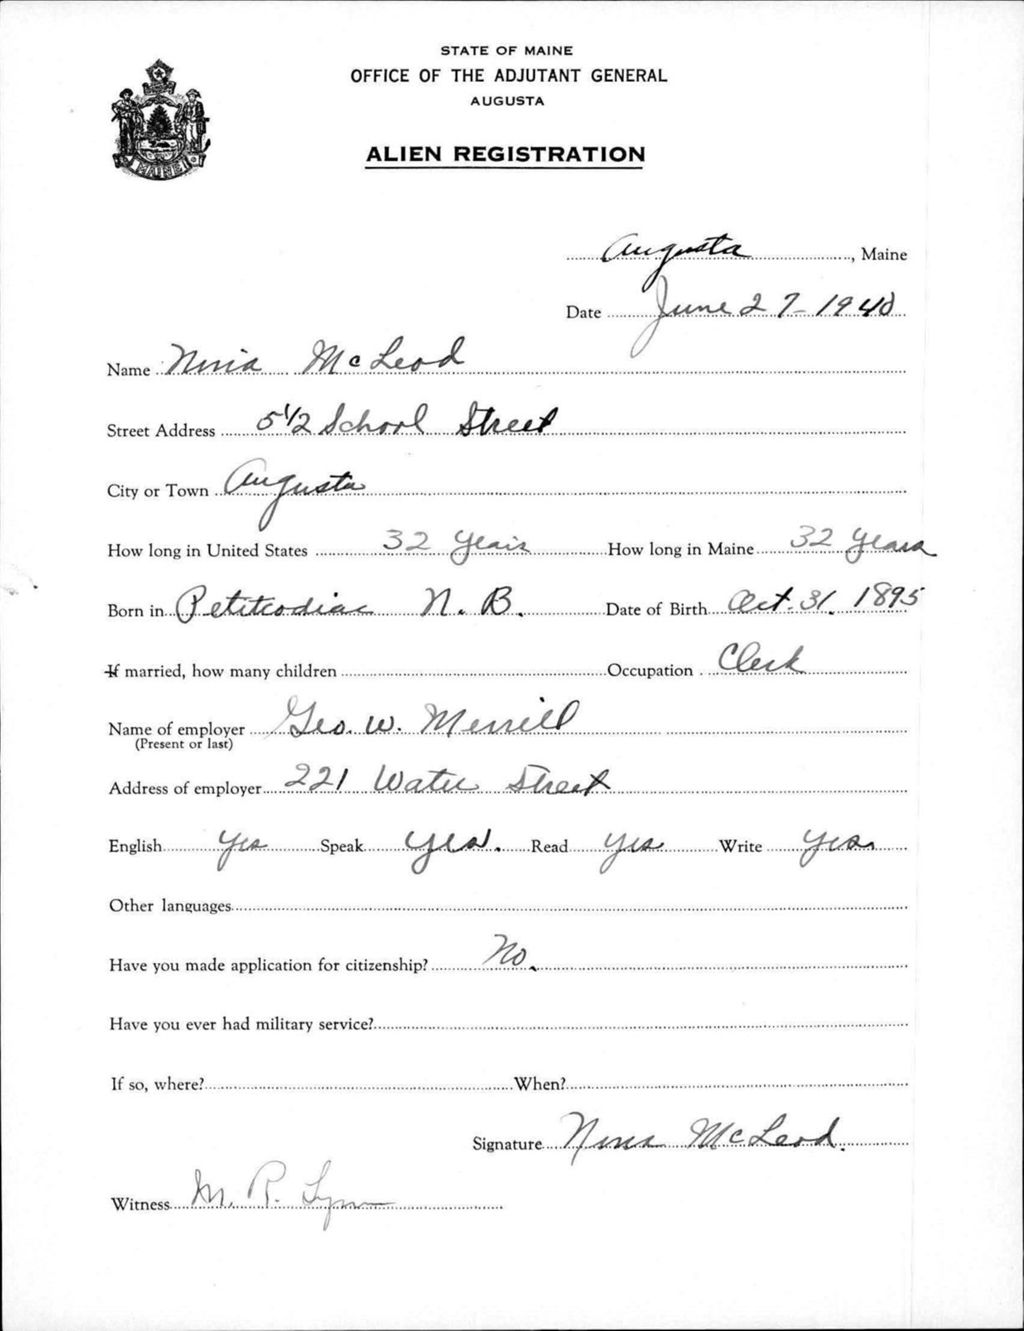 STATE OF MAINE
OFFICE OF THE ADJUTANT GENERAL
AUGUSTA
ALIEN REGISTRATION
MAINE
Augusta, Maine
Date June 27-1940
Name Nina McLeod
Street Address 5 1/2 School Street
City or Town Augusta
How long in United States 32 years How long in Maine 32 years
Born in Petitcodiac N. B. Date of Birth Oct. 31. 1895
If married, how many children Occupation Clerk
Name of employer Geo. W. Merrill
(Present or last)
Address of employer 221 Water Street
English Yes Speak Yes. Read Yes Write Yes
Other languages
Have you made application for citizenship? No.
Have you ever had military service?
If so, where? When?
Signature Nina McLeod.
Witness M. R. Lynn